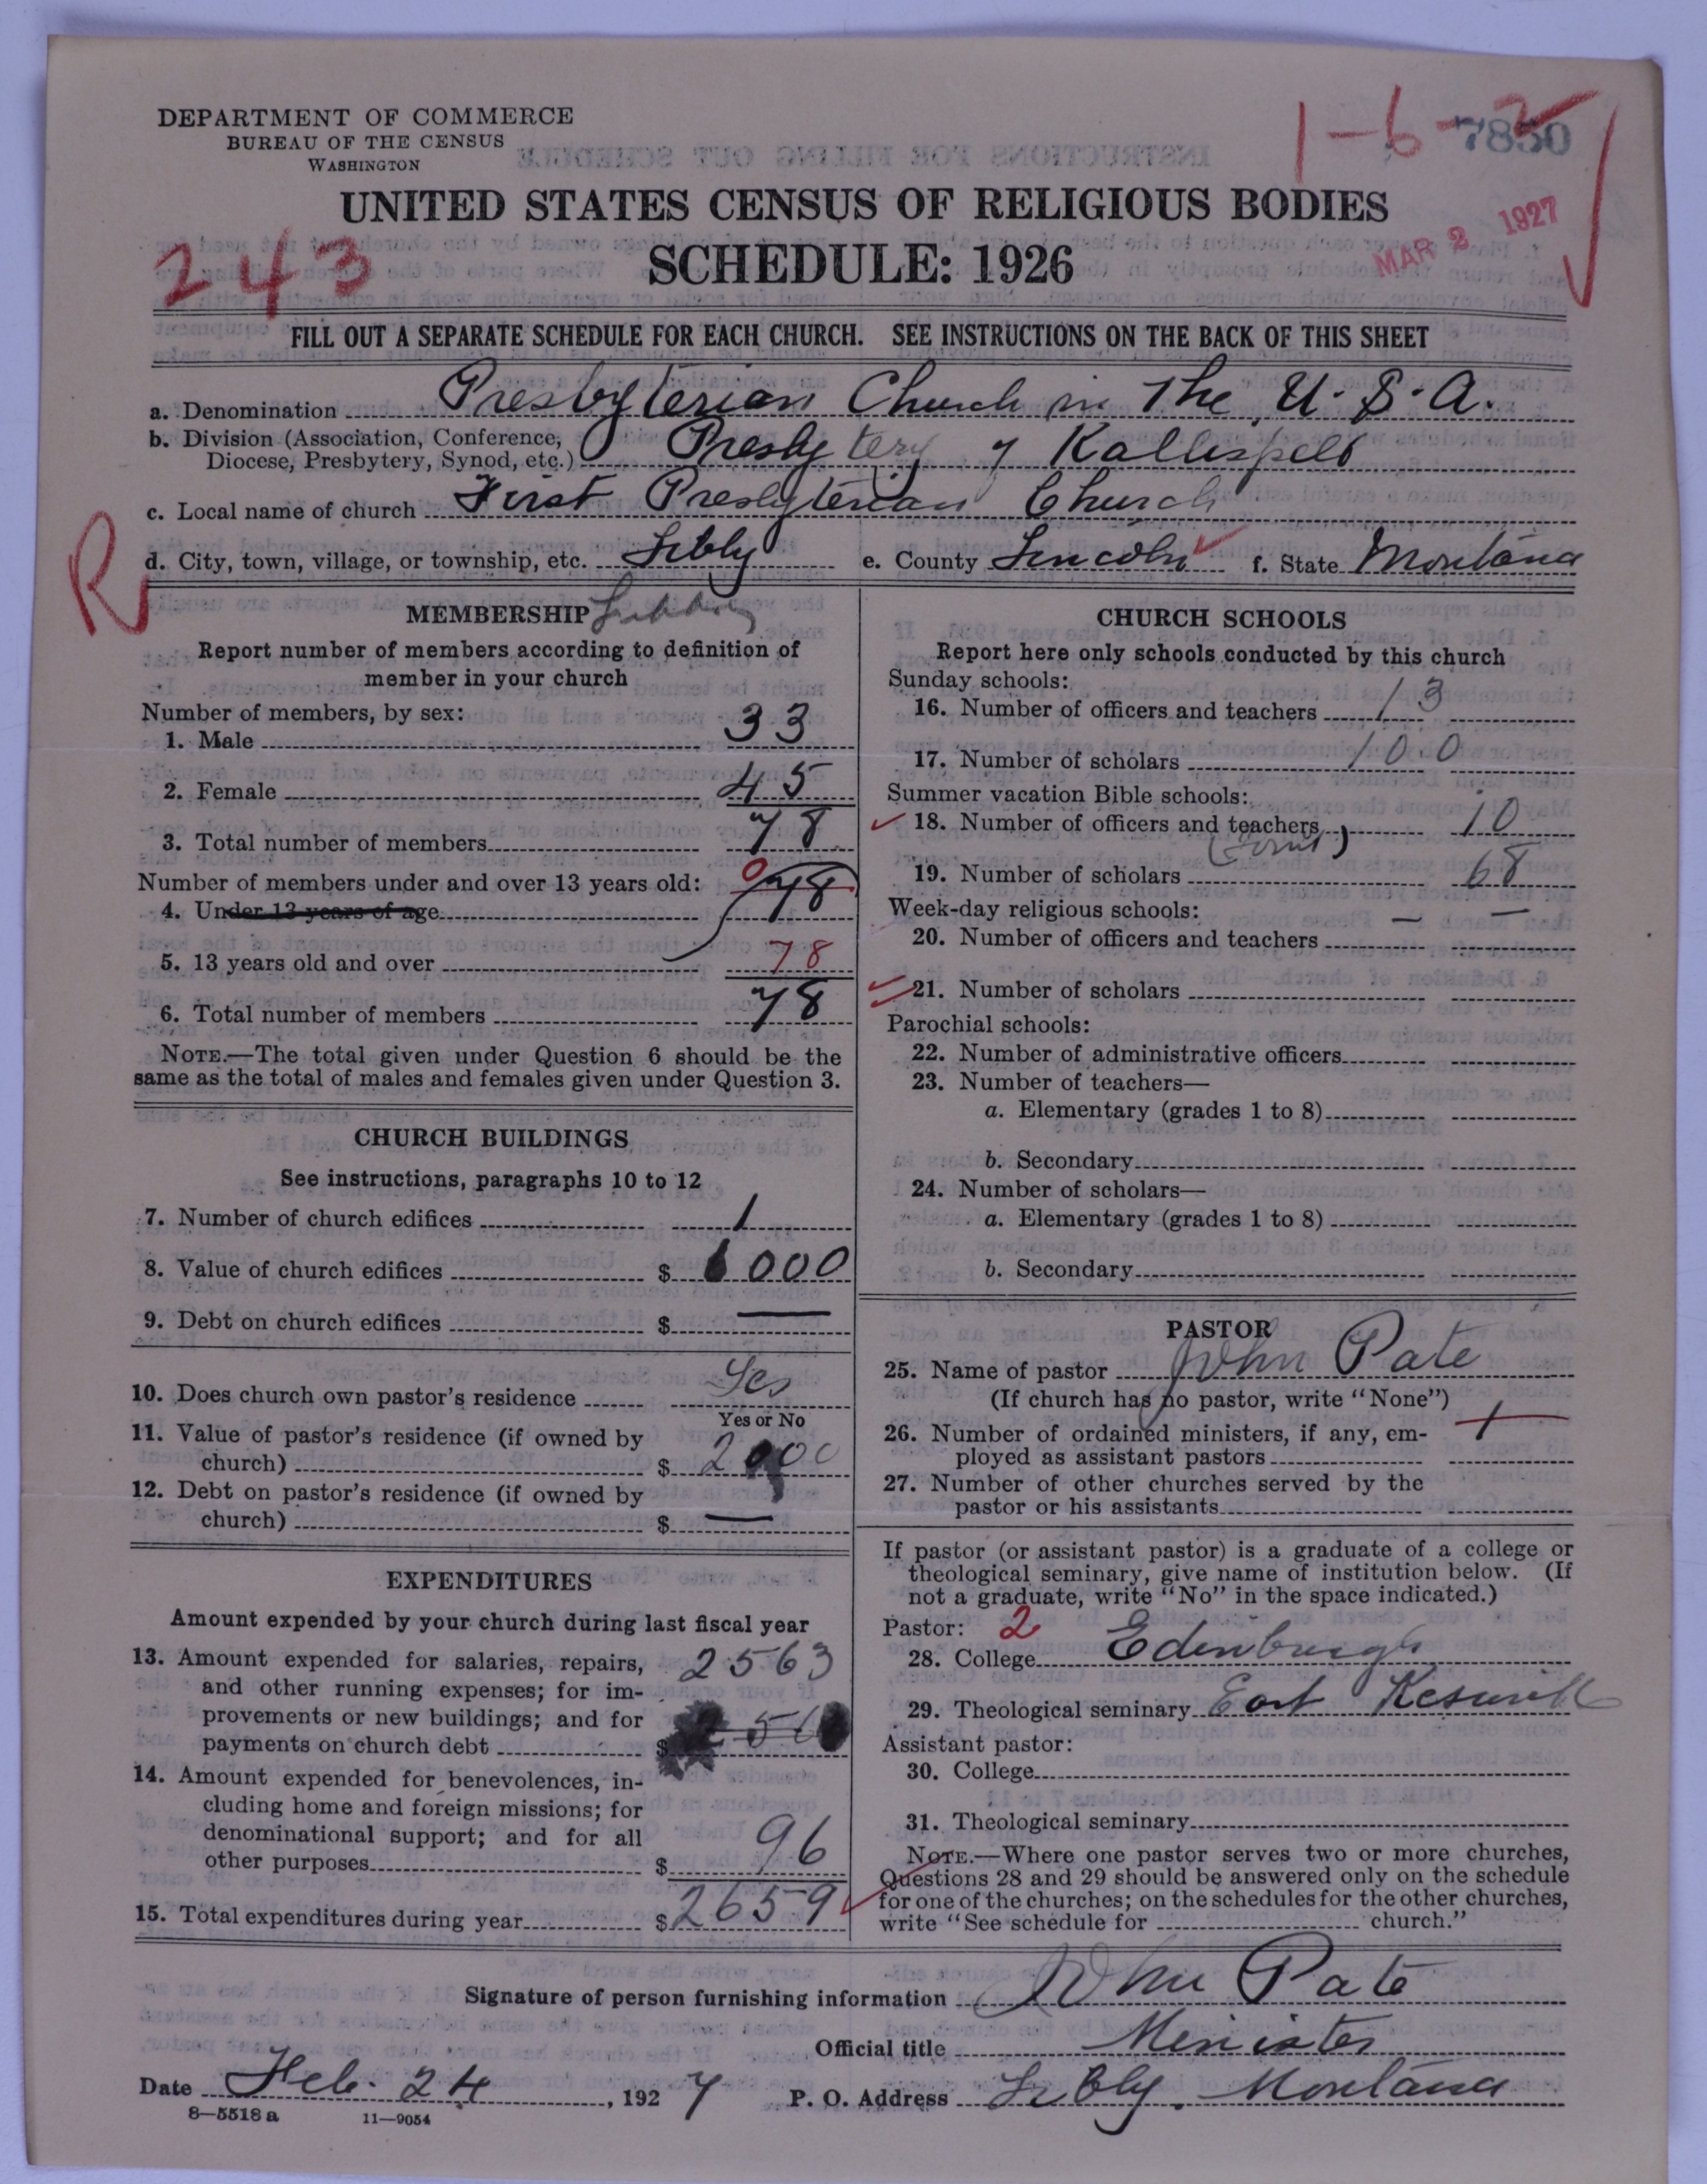 DEPARTMENT OF COMMERCE
BUREAU OF THE CENSUS
WASHINGTON
1-6-2
7850
UNITED STATES CENSUS OF RELIGIOUS BODIES
SCHEDULE: 1926
243
MAR 2 1927
FILL OUT A SEPARATE SCHEDULE FOR EACH CHURCH. SEE INSTRUCTIONS ON THE BACK OF THIS SHEET
a. Denomination Presbyterian Church in The U.S.A.
b. Division (Association, Conference,
Diocese, Presbytery, Synod, etc.) Presbytery of Kallispell
c. Local name of church First Presbyterian Church
R
d. City, town, village, or township, etc. Libby e. County Lincoln f. State Montana
MEMBERSHIP Libby
Report number of members according to definition of
member in your church
Number of members, by sex:
1. Male 33
2. Female 45
3. Total number of members 78
Number of members under and over 13 years old: 0
4. Under 13 years of age 78
5. 13 years old and over 78
6. Total number of members 78
NOTE.—The total given under Question 6 should be the
same as the total of males and females given under Question 3.
CHURCH BUILDINGS
See instructions, paragraphs 10 to 12
7. Number of church edifices 1
8. Value of church edifices $ 6000
9. Debt on church edifices $ —
10. Does church own pastor's residence Yes
Yes or No
11. Value of pastor's residence (if owned by
church) $ 2000
12. Debt on pastor's residence (if owned by
church) $ —
EXPENDITURES
Amount expended by your church during last fiscal year
13. Amount expended for salaries, repairs, 2563
and other running expenses; for im-
provements or new buildings; and for
payments on church debt $
14. Amount expended for benevolences, in-
cluding home and foreign missions; for
denominational support; and for all
other purposes $ 96
15. Total expenditures during year $ 2659
CHURCH SCHOOLS
Report here only schools conducted by this church
Sunday schools:
16. Number of officers and teachers 13
17. Number of scholars 100
Summer vacation Bible schools:
18. Number of officers and teachers 10
(Joint)
19. Number of scholars 68
Week-day religious schools: — —
20. Number of officers and teachers
21. Number of scholars
Parochial schools:
22. Number of administrative officers
23. Number of teachers—
a. Elementary (grades 1 to 8)
b. Secondary
24. Number of scholars—
a. Elementary (grades 1 to 8)
b. Secondary
PASTOR
25. Name of pastor John Pate
(If church has no pastor, write "None")
26. Number of ordained ministers, if any, em- 1
ployed as assistant pastors
27. Number of other churches served by the
pastor or his assistants
If pastor (or assistant pastor) is a graduate of a college or
theological seminary, give name of institution below. (If
not a graduate, write "No" in the space indicated.)
Pastor: 2
28. College Edenburgh
29. Theological seminary East Keswick
Assistant pastor:
30. College
31. Theological seminary
NOTE.—Where one pastor serves two or more churches,
Questions 28 and 29 should be answered only on the schedule
for one of the churches; on the schedules for the other churches,
write "See schedule for church."
Signature of person furnishing information John Pate
Official title Minister
Date Feb. 24, 1927 P. O. Address Libby. Montana
8—5518 a 11—9054